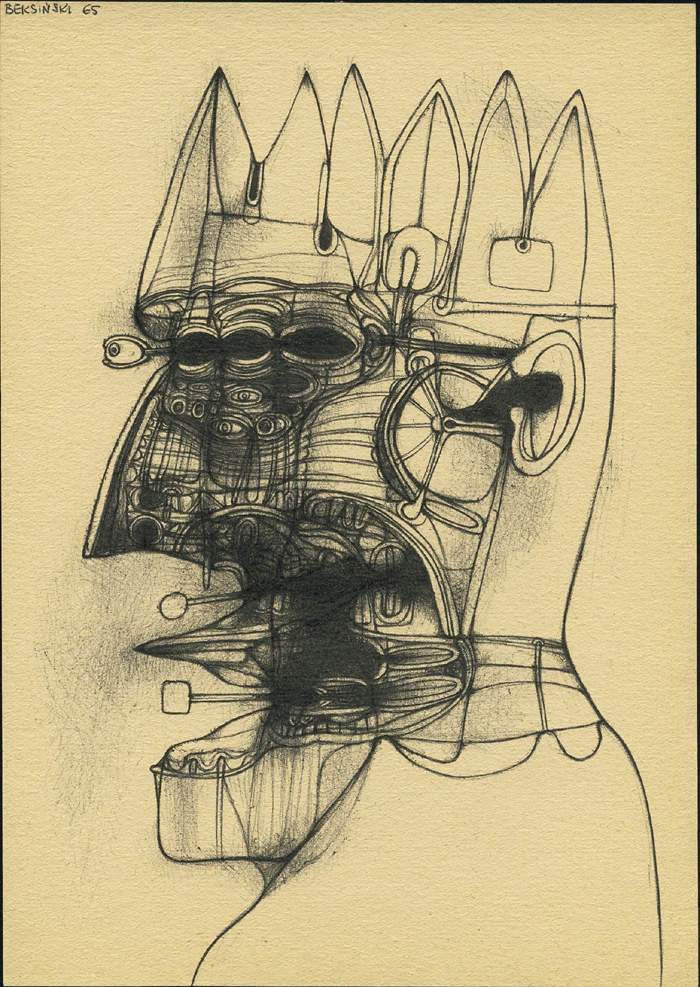 BEKSIŃSKI 65